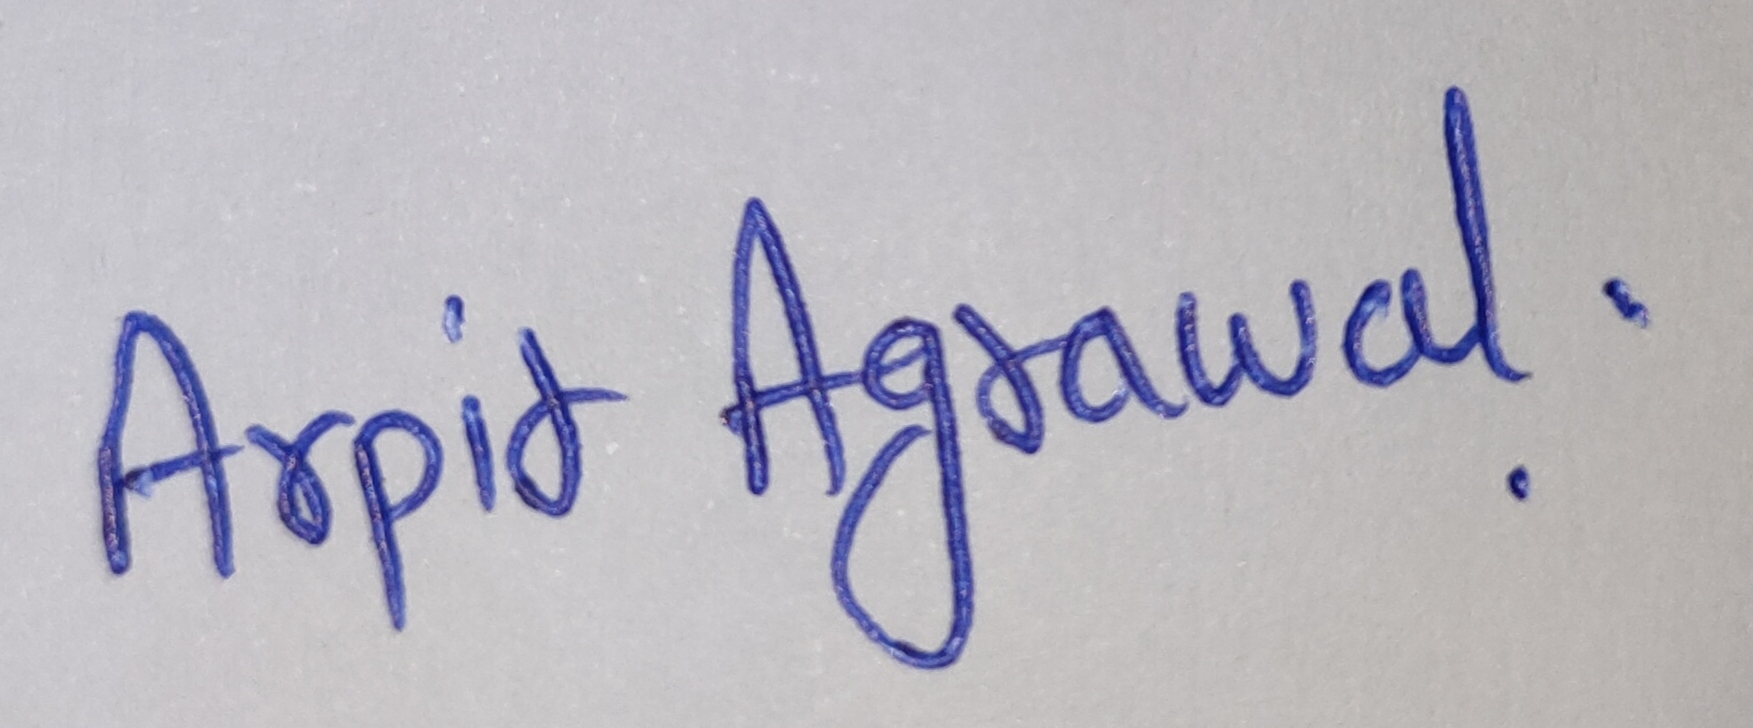 Arpit Agrawal.